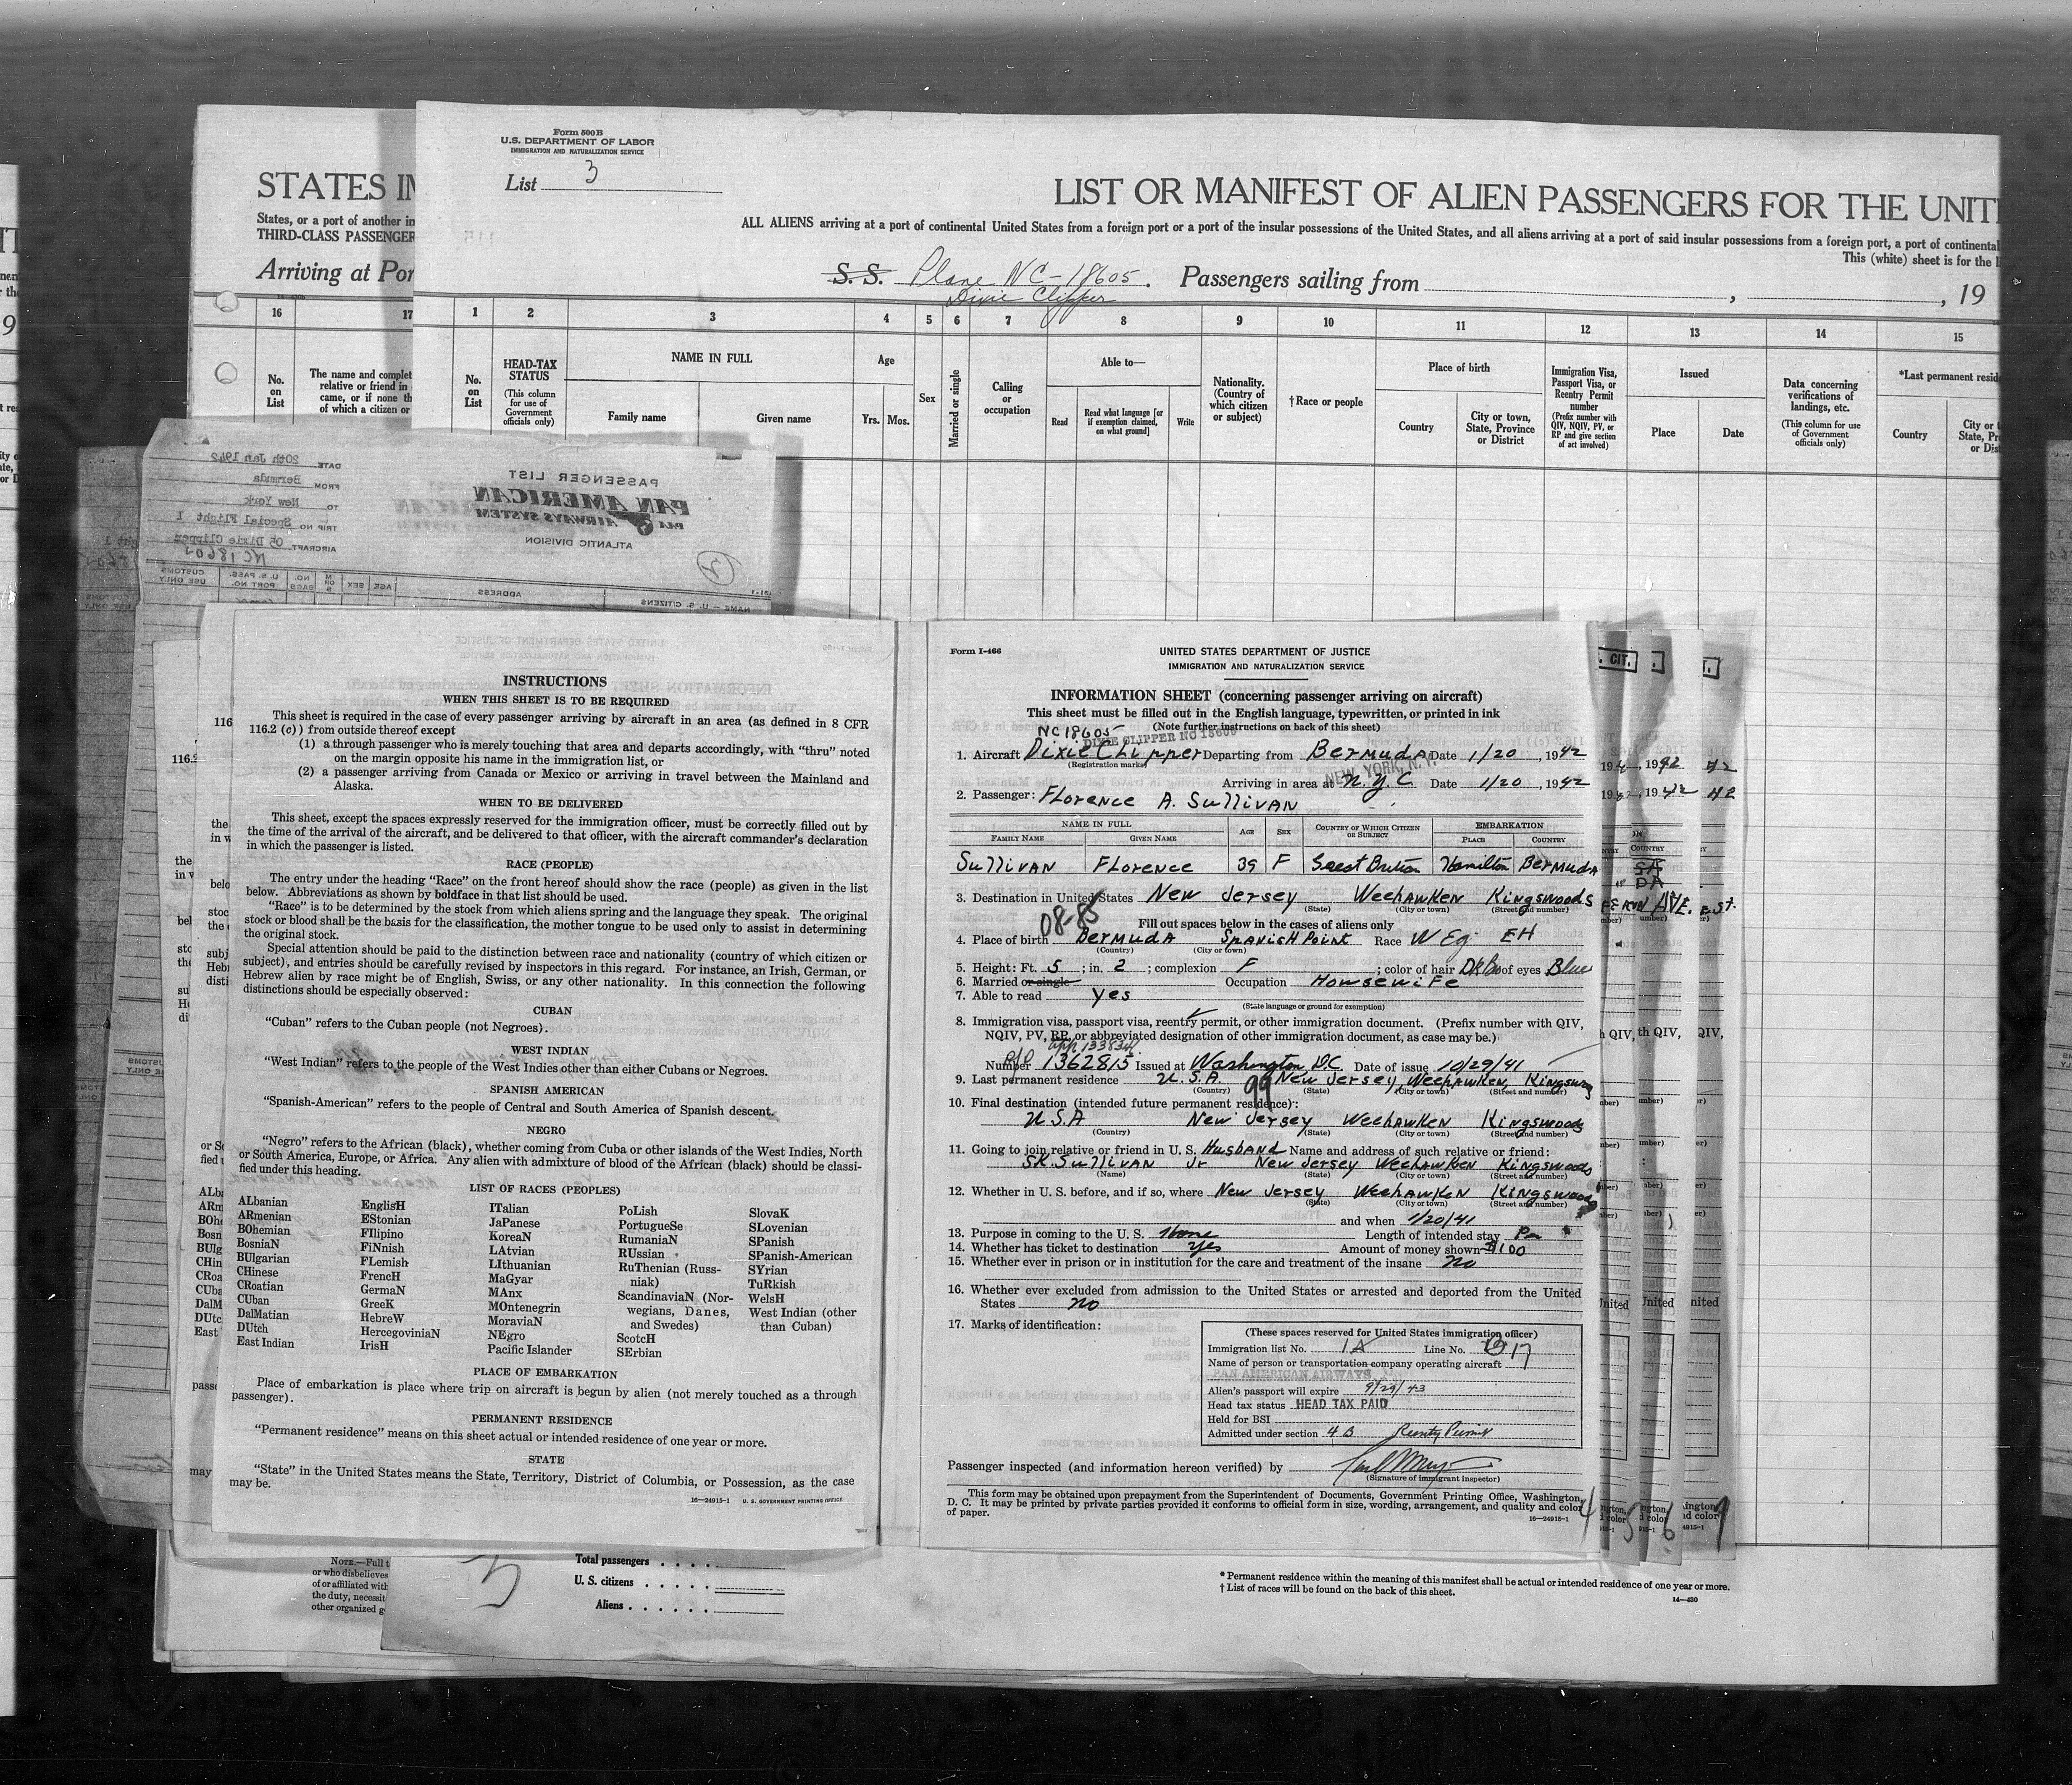 Form 500B
U.S. DEPARTMENT OF LABOR
IMMIGRATION AND NATURALIZATION SERVICE
List 3
STATES
LIST OR MANIFEST OF ALIEN PASSENGERS FOR THE
States, or a port of another
THIRD-CLASS PASSENGER
ALL ALIENS arriving at a port of continental United States from a foreign port or a port of the insular possessions of the United States, and all aliens arriving at a port of said insular possessions from a foreign port, a port of continental
This (white) sheet is for the
Arriving at
S. S. Plane NC-18605. Passengers sailing from , , 19
Dixie Clipper
16 17 1 2 3 4 5 6 7 8 9 10 11 12 13 14 15
No. on List
The name and complet
relative or friend in
came, or if none th
of which a citizen or
No. on List
HEAD-TAX STATUS
(This column for use of Government officials only)
NAME IN FULL
Family name
Given name
Age
Yrs. Mos.
Sex
Married or single
Calling or occupation
Able to—
Read
Read what language [or if exemption claimed, on what ground]
Write
Nationality. (Country of which citizen or subject)
†Race or people
Place of birth
Country
City or town, State, Province or District
Immigration Visa, Passport Visa, or Reentry Permit number
(Prefix number with QIV, NQIV, PV, or RP and give section of act involved)
Issued
Place
Date
Data concerning verifications of landings, etc.
(This column for use of Government officials only)
*Last permanent
Country
PASSENGER LIST
PAN AMERICAN
AIRWAYS SYSTEM
ATLANTIC DIVISION
DATE 20th Jan 1942
FROM Bermuda
TO New York
TRIP NO. Special Flight 1
AIRCRAFT 05 Dixie Clipper
NC18605
NAME — U. S. CITIZENS ADDRESS AGE SEX M OR S NO. BAGS U. S. PASS. PORT NO. CUSTOMS USE ONLY
INSTRUCTIONS
WHEN THIS SHEET IS TO BE REQUIRED
This sheet is required in the case of every passenger arriving by aircraft in an area (as defined in 8 CFR
116.2 (c)) from outside thereof except
(1) a through passenger who is merely touching that area and departs accordingly, with "thru" noted
on the margin opposite his name in the immigration list, or
(2) a passenger arriving from Canada or Mexico or arriving in travel between the Mainland and
Alaska.
WHEN TO BE DELIVERED
This sheet, except the spaces expressly reserved for the immigration officer, must be correctly filled out by
the time of the arrival of the aircraft, and be delivered to that officer, with the aircraft commander's declaration
in which the passenger is listed.
RACE (PEOPLE)
The entry under the heading "Race" on the front hereof should show the race (people) as given in the list
below. Abbreviations as shown by boldface in that list should be used.
"Race" is to be determined by the stock from which aliens spring and the language they speak. The original
stock or blood shall be the basis for the classification, the mother tongue to be used only to assist in determining
the original stock.
Special attention should be paid to the distinction between race and nationality (country of which citizen or
subject), and entries should be carefully revised by inspectors in this regard. For instance, an Irish, German, or
Hebrew alien by race might be of English, Swiss, or any other nationality. In this connection the following
distinctions should be especially observed:
CUBAN
"Cuban" refers to the Cuban people (not Negroes).
WEST INDIAN
"West Indian" refers to the people of the West Indies other than either Cubans or Negroes.
SPANISH AMERICAN
"Spanish-American" refers to the people of Central and South America of Spanish descent.
NEGRO
"Negro" refers to the African (black), whether coming from Cuba or other islands of the West Indies, North
or South America, Europe, or Africa. Any alien with admixture of blood of the African (black) should be classi-
fied under this heading.
LIST OF RACES (PEOPLES)
ALbanian
ARmenian
BOhemian
BosniaN
BUlgarian
CHinese
CRoatian
CUban
DalMatian
DUtch
East Indian
EnglisH
EStonian
FIlipino
FiNnish
FLemish
FrencH
GermaN
GreeK
HebreW
HercegoviniaN
IrisH
ITalian
JaPanese
KoreaN
LAtvian
LIthuanian
MaGyar
MAnx
MOntenegrin
MoraviaN
NEgro
Pacific Islander
PoLish
PortugueSe
RumaniaN
RUssian
RuThenian (Russ-
niak)
ScandinaviaN (Nor-
wegians, Danes,
and Swedes)
ScotcH
SErbian
SlovaK
SLovenian
SPanish
SPanish-American
SYrian
TuRkish
WelsH
West Indian (other
than Cuban)
PLACE OF EMBARKATION
Place of embarkation is place where trip on aircraft is begun by alien (not merely touched as a through
passenger).
PERMANENT RESIDENCE
"Permanent residence" means on this sheet actual or intended residence of one year or more.
STATE
"State" in the United States means the State, Territory, District of Columbia, or Possession, as the case
may be.
16—24915-1 U. S. GOVERNMENT PRINTING OFFICE
Form I-466
UNITED STATES DEPARTMENT OF JUSTICE
IMMIGRATION AND NATURALIZATION SERVICE
INFORMATION SHEET (concerning passenger arriving on aircraft)
This sheet must be filled out in the English language, typewritten, or printed in ink
(Note further instructions on back of this sheet)
NC18605
DIXIE CLIPPER NC 18605
1. Aircraft Dixie Clipper Departing from Bermuda Date 1/20, 1942
(Registration marks)
NEW YORK, N.Y.
Arriving in area at N.Y.C Date 1/20, 1942
2. Passenger: Florence A. Sullivan
NAME IN FULL AGE SEX COUNTRY OF WHICH CITIZEN OR SUBJECT EMBARKATION
FAMILY NAME GIVEN NAME PLACE COUNTRY
Sullivan Florence 39 F Great Britian Hamilton Bermuda
3. Destination in United States New Jersey Weehawken Kingswoods
(State) (City or town) (Street and number)
08-85
Fill out spaces below in the cases of aliens only
4. Place of birth Bermuda Spanish Point Race W Eg EH
(Country) (City or town)
5. Height: Ft. 5; in. 2; complexion F; color of hair DkBr of eyes Blue
6. Married or single Occupation Housewife
7. Able to read yes
(State language or ground for exemption)
8. Immigration visa, passport visa, reentry permit, or other immigration document. (Prefix number with QIV,
NQIV, PV, RP, or abbreviated designation of other immigration document, as case may be.)
Number 1362815 Issued at Washington D.C. Date of issue 10/29/41
9. Last permanent residence U.S.A. New Jersey Weehawken, Kingswy
(Country) (State) (City or town) (Street and number)
99
10. Final destination (intended future permanent residence):
U.S.A New Jersey Weehawken Kingswoods
(Country) (State) (City or town) (Street and number)
11. Going to join relative or friend in U. S. Husband Name and address of such relative or friend:
S.K. Sullivan Jr New Jersey Weehawken Kingswoods
(Name) (State) (City or town) (Street and number)
12. Whether in U. S. before, and if so, where New Jersey Weehawken Kingswood
(State) (City or town) (Street and number)
and when 1/20/41
13. Purpose in coming to the U. S. Home Length of intended stay Pm
14. Whether has ticket to destination Yes Amount of money shown $100
15. Whether ever in prison or in institution for the care and treatment of the insane No
16. Whether ever excluded from admission to the United States or arrested and deported from the United
States no
17. Marks of identification:
(These spaces reserved for United States immigration officer)
Immigration list No. 1A Line No. 17
Name of person or transportation company operating aircraft
PAN AMERICAN AIRWAYS
Alien's passport will expire 9/29/43
Head tax status HEAD TAX PAID
Held for BSI
Admitted under section 4 B Reentry Permit
Passenger inspected (and information hereon verified) by
(Signature of immigrant inspector)
This form may be obtained upon prepayment from the Superintendent of Documents, Government Printing Office, Washington,
D. C. It may be printed by private parties provided it conforms to official form in size, wording, arrangement, and quality and color
of paper.
16—24915-1
4 5 6 7
NOTE.—Full
or who disbelieves
of or affiliated with
the duty, necessit
other organized g
Total passengers
U. S. citizens
Aliens
* Permanent residence within the meaning of this manifest shall be actual or intended residence of one year or more.
† List of races will be found on the back of this sheet.
14—430